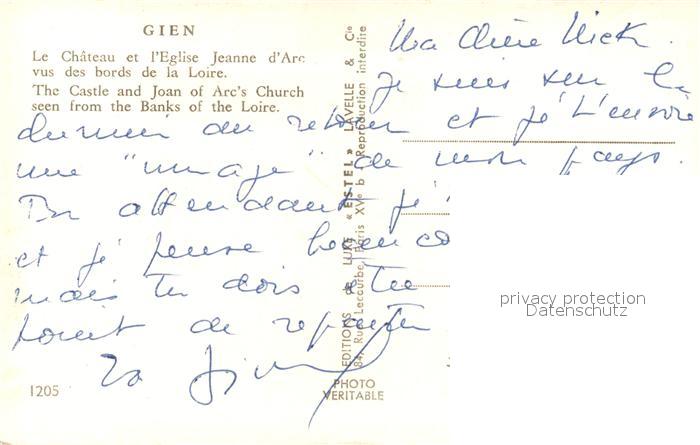 GIEN
Le Château et l'Eglise Jeanne d'Arc
vus des bords de la Loire.
The Castle and Joan of Arc's Church
seen from the Banks of the Loire.
Ma Chère
je suis sur le
du retour et je t'envoie
une "image" de mon pays.
En attendant je
et je pense
mais tu dois être
point de
1205
EDITIONS de LUXE « ESTEL » LAVELLE & Cie
84, Rue Lecourbe, Paris XVe b - Reproduction interdite
PHOTO
VERITABLE
privacy protection
Datenschutz